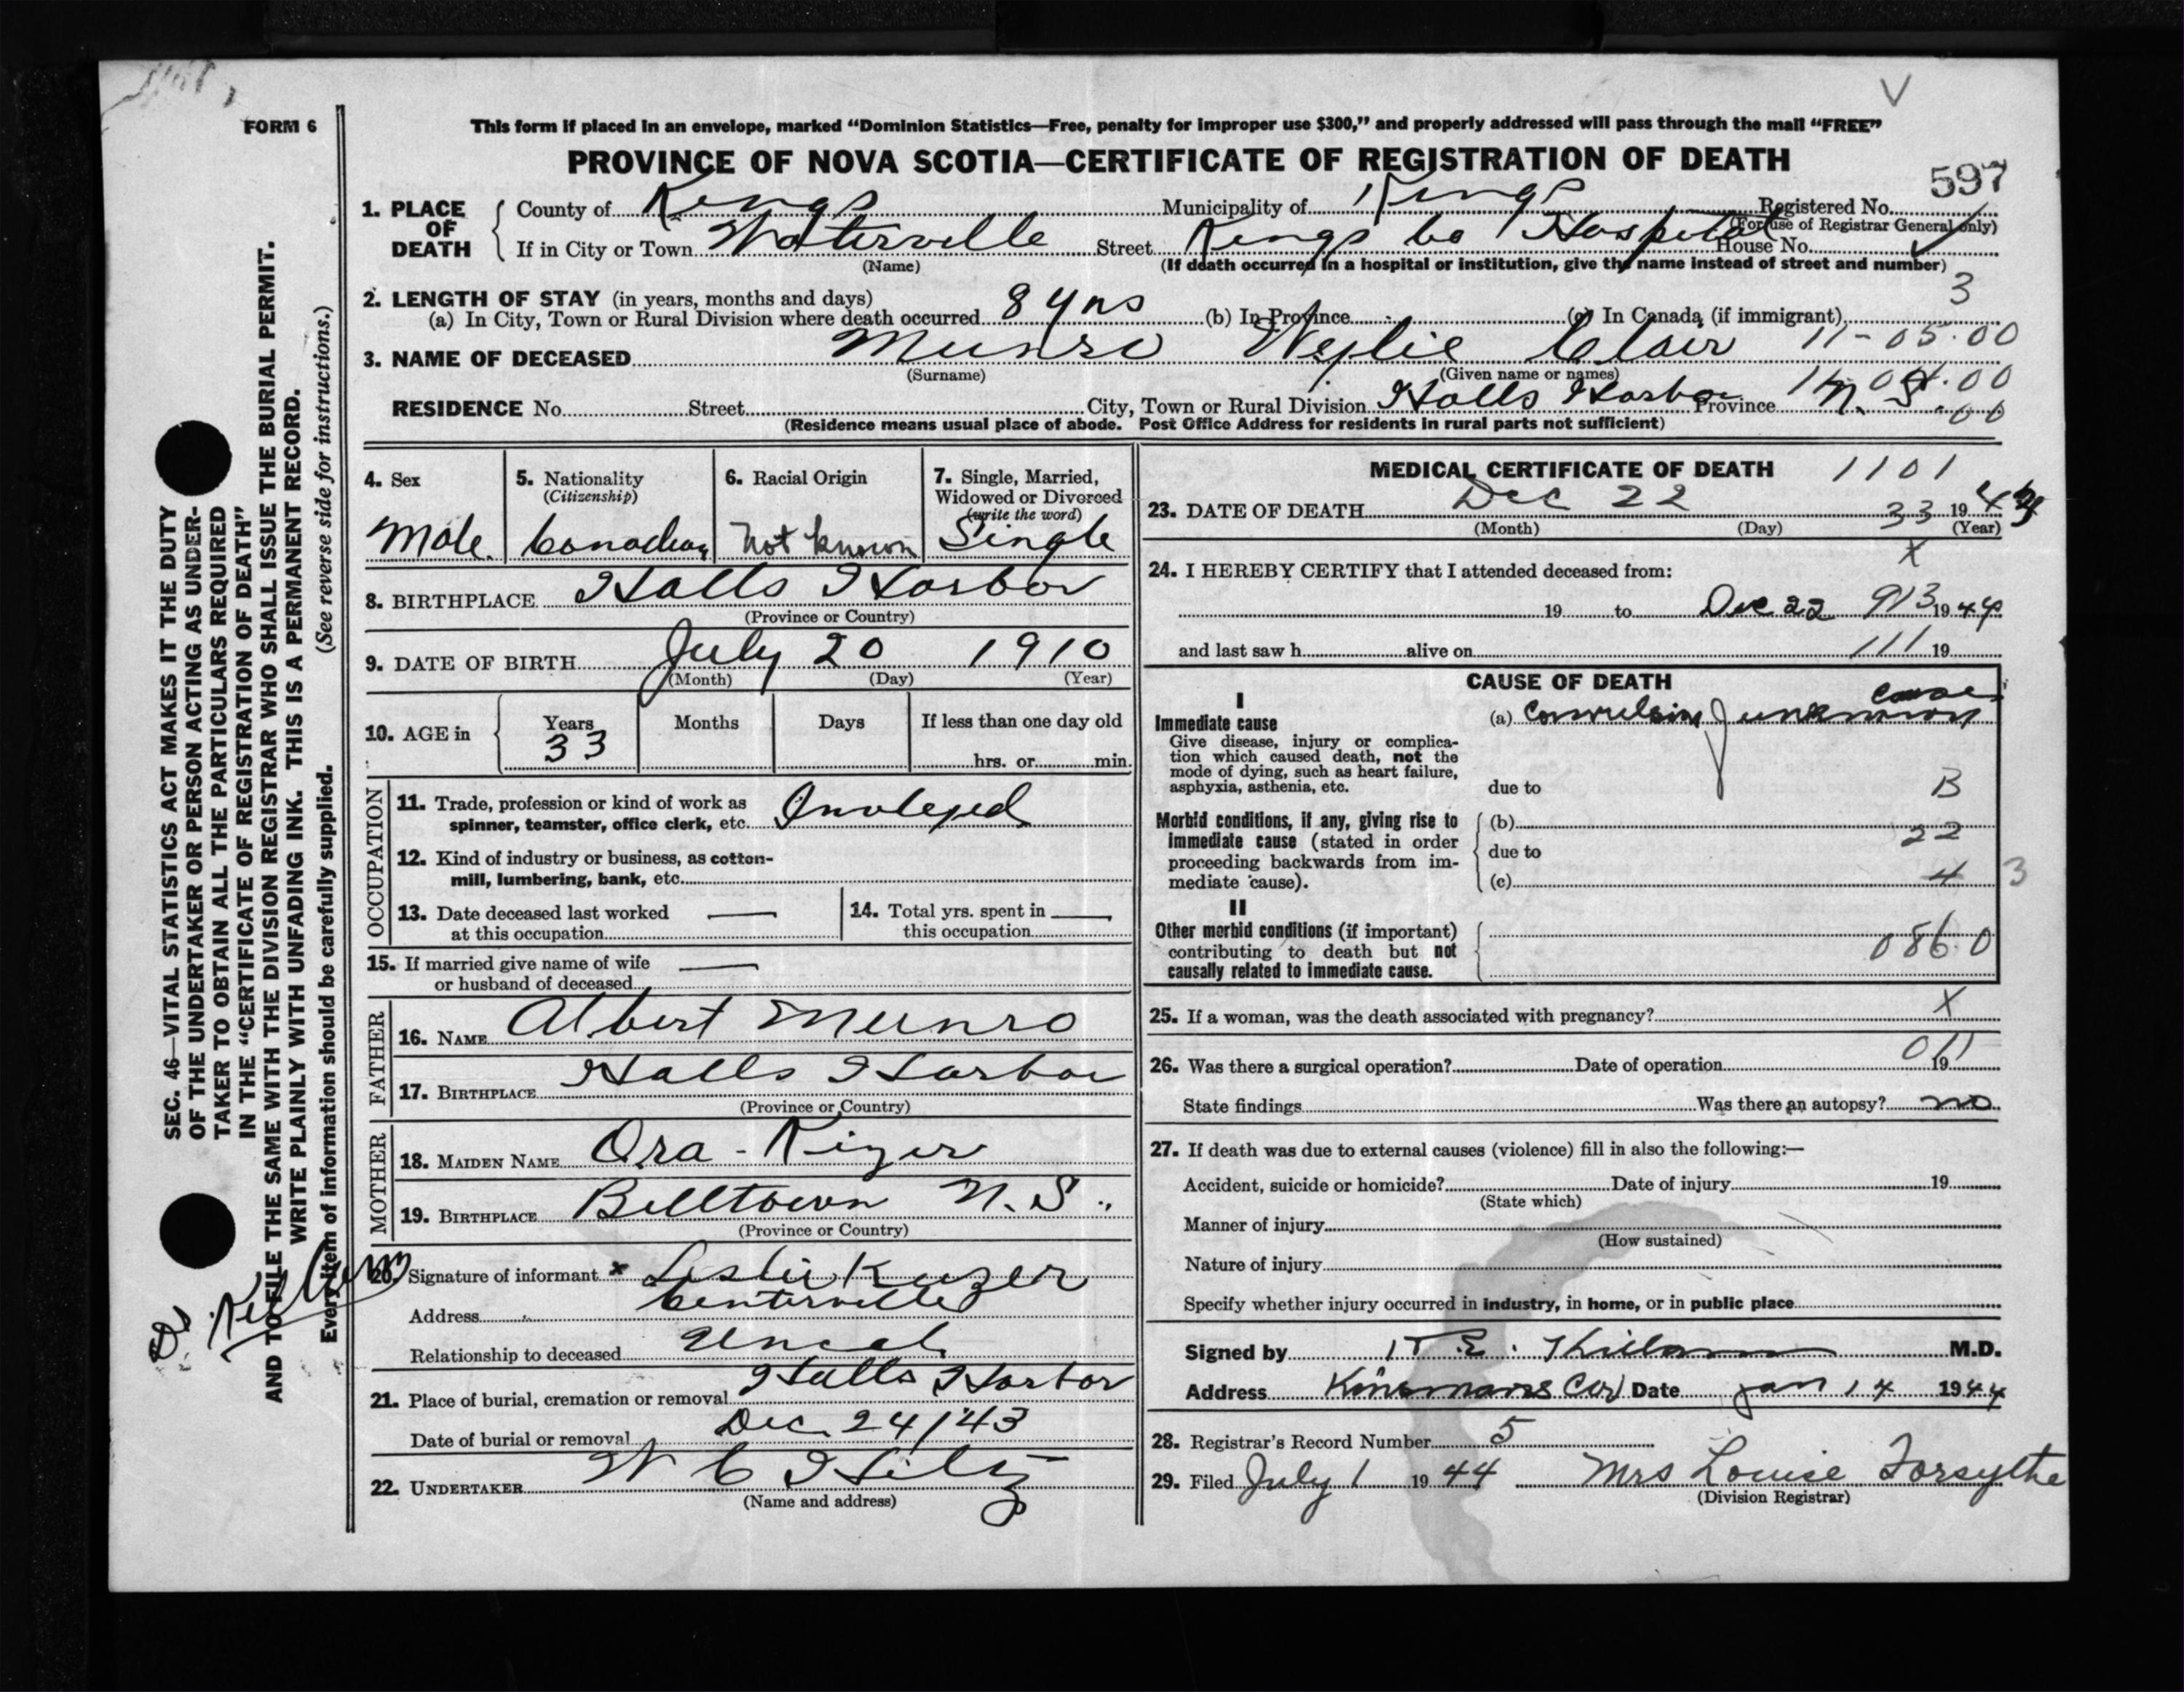 FORM 6
This form if placed in an envelope, marked “Dominion Statistics—Free, penalty for improper use $300,” and properly addressed will pass through the mail “FREE”
PROVINCE OF NOVA SCOTIA—CERTIFICATE OF REGISTRATION OF DEATH
597
1. PLACE OF DEATH { County of Kings Municipality of Kings Registered No.
(For use of Registrar General only)
If in City or Town Waterville Street Kings Co Hospital House No.
(Name) (If death occurred in a hospital or institution, give the name instead of street and number)
3
2. LENGTH OF STAY (in years, months and days)
(a) In City, Town or Rural Division where death occurred 8 yrs (b) In Province (c) In Canada (if immigrant)
3. NAME OF DECEASED Munro Wylie Clair 11-05.00
(Surname) (Given name or names)
RESIDENCE No. Street City, Town or Rural Division Halls Harbor Province N. S.
(Residence means usual place of abode. Post Office Address for residents in rural parts not sufficient)
4. Sex 5. Nationality (Citizenship) 6. Racial Origin 7. Single, Married, Widowed or Divorced (write the word)
Male. Canadian Not known Single
8. BIRTHPLACE Halls Harbor
(Province or Country)
9. DATE OF BIRTH July 20 1910
(Month) (Day) (Year)
10. AGE in { Years Months Days If less than one day old
33 hrs. or min.
OCCUPATION
11. Trade, profession or kind of work as
spinner, teamster, office clerk, etc.
12. Kind of industry or business, as cotton-
mill, lumbering, bank, etc.
13. Date deceased last worked — 14. Total yrs. spent in —
at this occupation this occupation
15. If married give name of wife —
or husband of deceased
FATHER
16. NAME Albert Munro
17. BIRTHPLACE Halls Harbor
(Province or Country)
MOTHER
18. MAIDEN NAME Ora - Kizer
19. BIRTHPLACE Billtown N.S.
(Province or Country)
20. Signature of informant x Leslie Keizer
Address Centerville
Relationship to deceased Uncal
21. Place of burial, cremation or removal Halls Harbor
Date of burial or removal Dec. 24/43
22. UNDERTAKER W C Hiltz
(Name and address)
MEDICAL CERTIFICATE OF DEATH 1101
23. DATE OF DEATH Dec 22 33 19 43
(Month) (Day) (Year)
X
24. I HEREBY CERTIFY that I attended deceased from:
19 to Dec 22 913 19 44
and last saw h alive on 111 19
CAUSE OF DEATH
I
Immediate cause (a) Convulsions unknown cause
Give disease, injury or complica-
tion which caused death, not the
mode of dying, such as heart failure,
asphyxia, asthenia, etc. due to B
Morbid conditions, if any, giving rise to (b)
immediate cause (stated in order 22
proceeding backwards from im- due to
mediate cause). (c) 4 3
II
Other morbid conditions (if important)
contributing to death but not 086.0
causally related to immediate cause.
25. If a woman, was the death associated with pregnancy? X
26. Was there a surgical operation? Date of operation 011 19
State findings Was there an autopsy? no
27. If death was due to external causes (violence) fill in also the following:—
Accident, suicide or homicide? Date of injury 19
(State which)
Manner of injury
(How sustained)
Nature of injury
Specify whether injury occurred in industry, in home, or in public place
Signed by M.D.
Address Kinsmans Cor Date Jan 14 1944
28. Registrar's Record Number 5
29. Filed July 1 19 44 Mrs Louise Forsythe
(Division Registrar)
SEC. 46—VITAL STATISTICS ACT MAKES IT THE DUTY
OF THE UNDERTAKER OR PERSON ACTING AS UNDER-
TAKER TO OBTAIN ALL THE PARTICULARS REQUIRED
IN THE “CERTIFICATE OF REGISTRATION OF DEATH”
AND TO FILE THE SAME WITH THE DIVISION REGISTRAR WHO SHALL ISSUE THE BURIAL PERMIT.
WRITE PLAINLY WITH UNFADING INK. THIS IS A PERMANENT RECORD.
Every item of information should be carefully supplied. (See reverse side for instructions.)